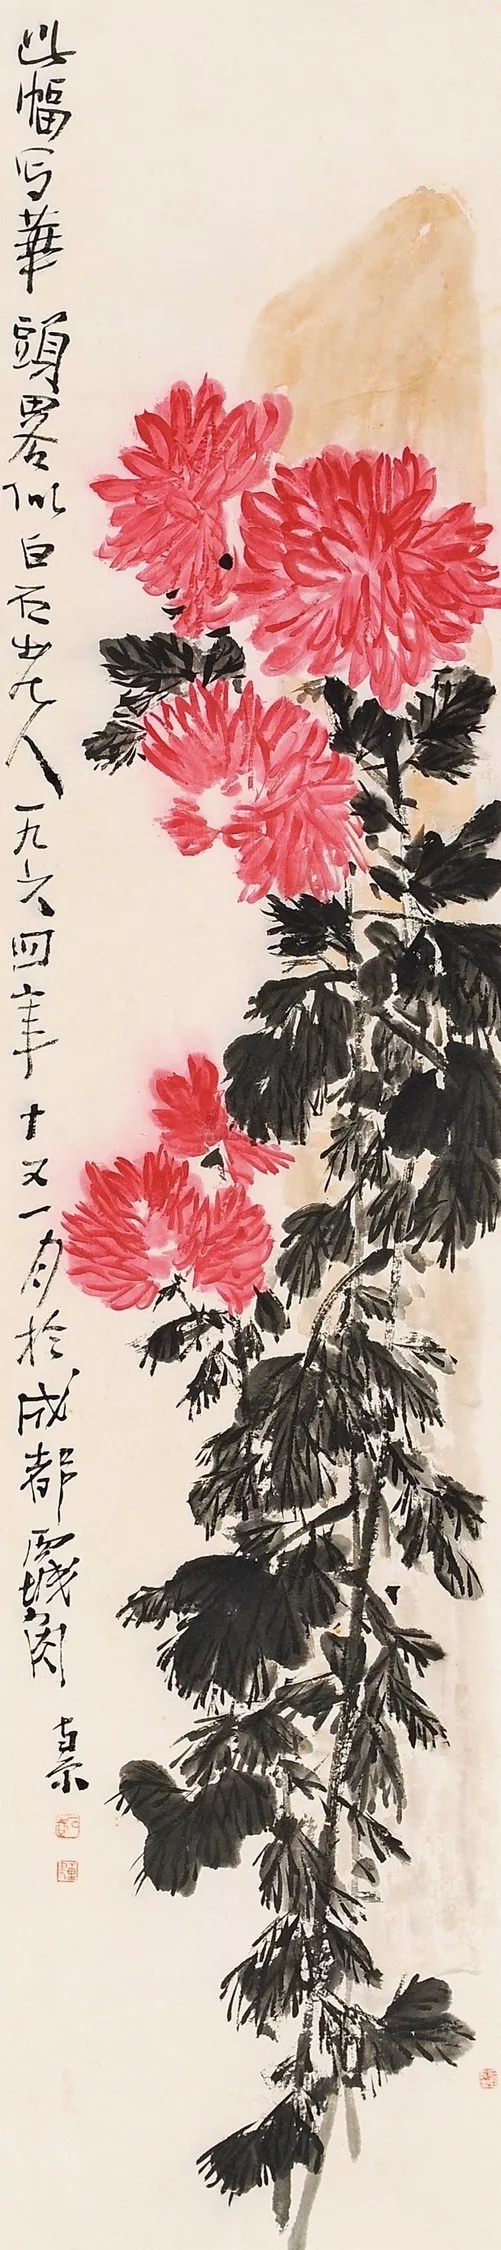 此幅写華頭畧似白石老人一九六四年十又一月於成都西城角 南原